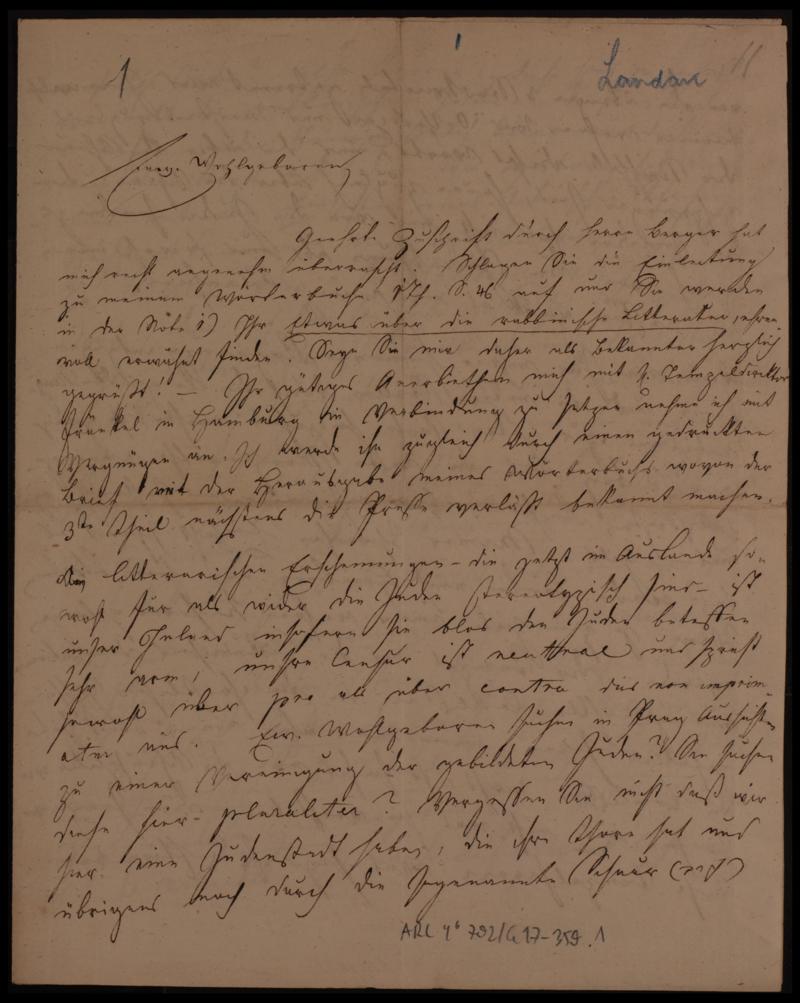 1
Landau
Euer. Wohlgeboren
Geehrte Zuschrift durch Herrn Berger hat
mich recht angenehm überrascht. Schlagen Sie die Einleitung
zu meinem Wörterbuche S. 46 auf und Sie werden
in der Note 1) Ihr Etwas über die rabbinische Litteratur, ehren
voll erwähnt finden. Seyn Sie mir daher als Bekannter herzlich
gegrüßt! — Ihr gütiges Anerbiethen mich mit H. Tempeldirektor
Fränkel in Hamburg in Verbindung zu setzen nehme ich mit
Vergnügen an. Ich werde ihn zugleich durch einen gedruckten
Brief mit der Herausgabe meines Wörterbuchs wovon der
3te Theil nächstens die Presse verläßt bekannt machen.
An litterarischen Erscheinungen – die jetzt im Auslande so-
wohl für als wider die Juden stereotypisch sind – ist
unser insofern sie blos den Juden betreffen
sehr arm, unsre Censur ist neutral und spricht
sowohl über pro als über contra das non imprim-
atur aus. Euer. Wohlgeboren suchen in Prag Aufsicht
zu einer Vereinigung der gebildeten Juden? Sie suchen
diese hier – pluraliter? Vergessen Sie nicht daß wir
hier eine Judenstadt haben, die ihre Thore hat und
übrigens noch durch die sogenannte Schnur
ARC 4° 792/G 17-359.1